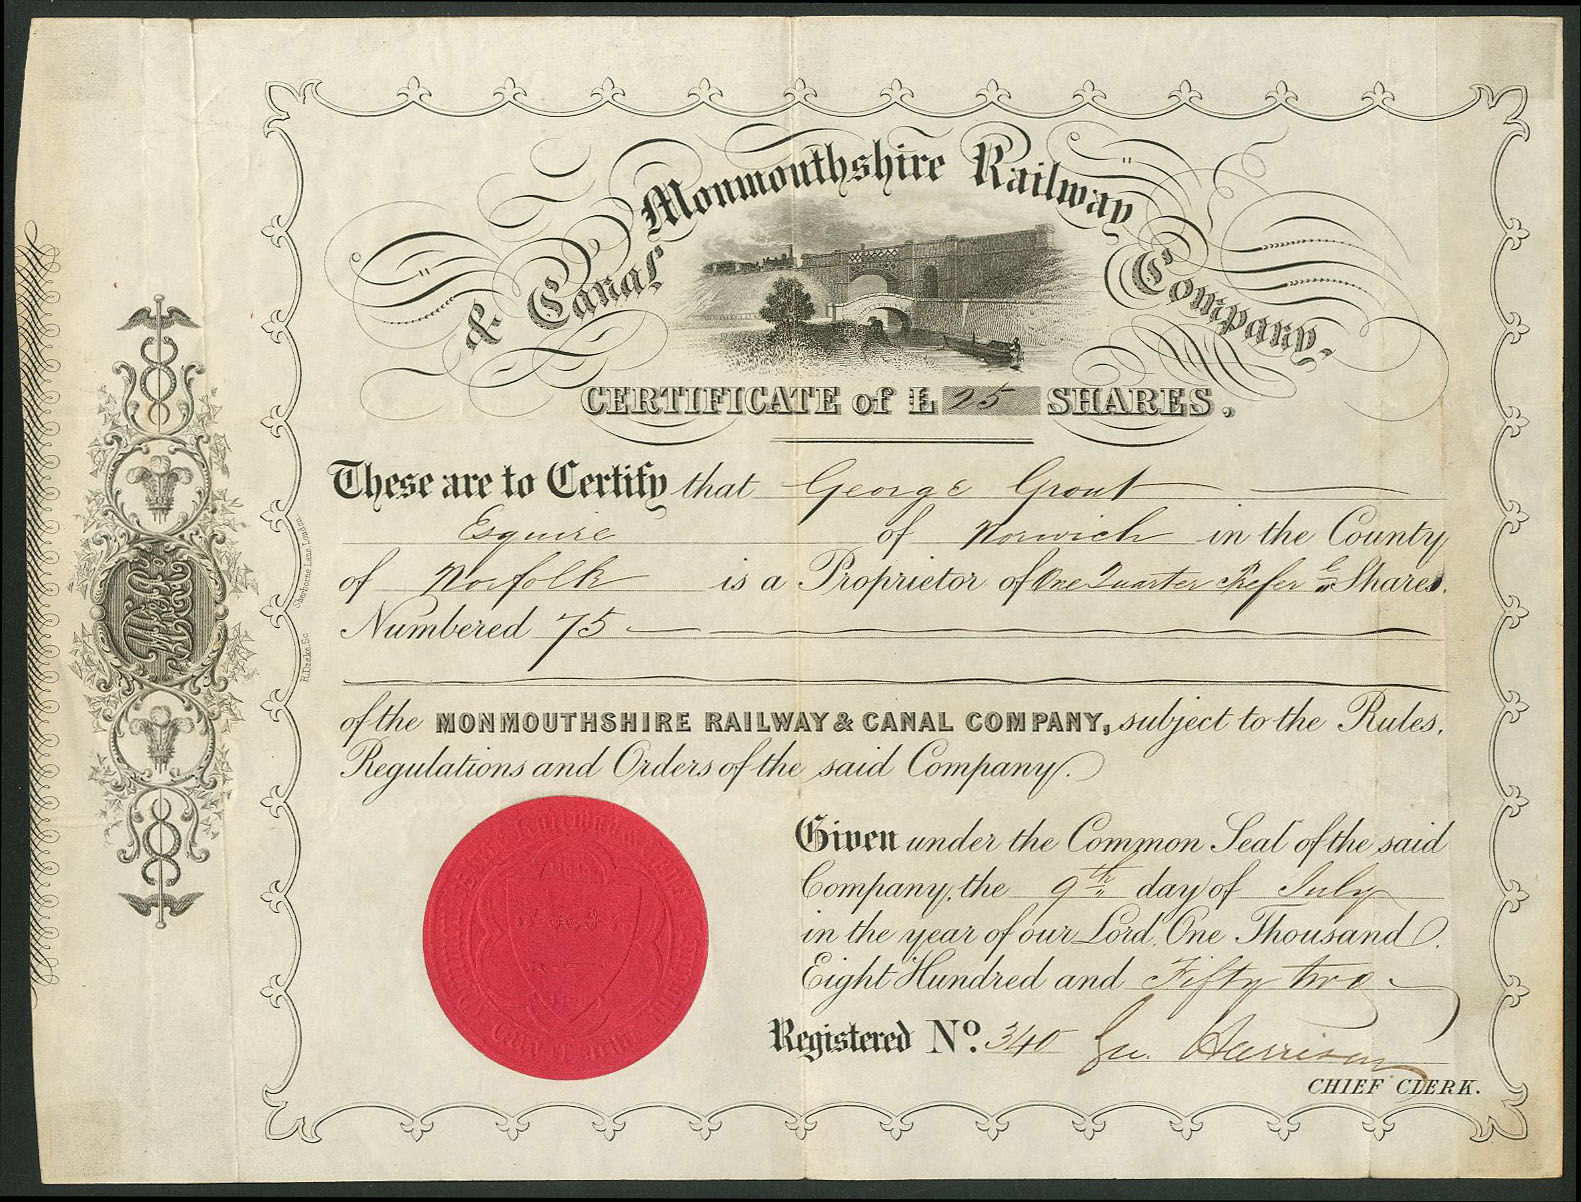 Monmouthshire Railway
& Canal Company.
CERTIFICATE of £ 25 SHARES.
These are to Certify that George Grout
Esquire of Norwich in the County
of Norfolk is a Proprietor of One Quarter Prefer ce Shares.
Numbered 75
of the MONMOUTHSHIRE RAILWAY & CANAL COMPANY, subject to the Rules,
Regulations and Orders of the said Company.
Given under the Common Seal of the said
Company, the 9th day of July
in the year of our Lord, One Thousand
Eight Hundred and Fifty two
Registered No. 340 Harrison
CHIEF CLERK.
Sherborne Lane, London.